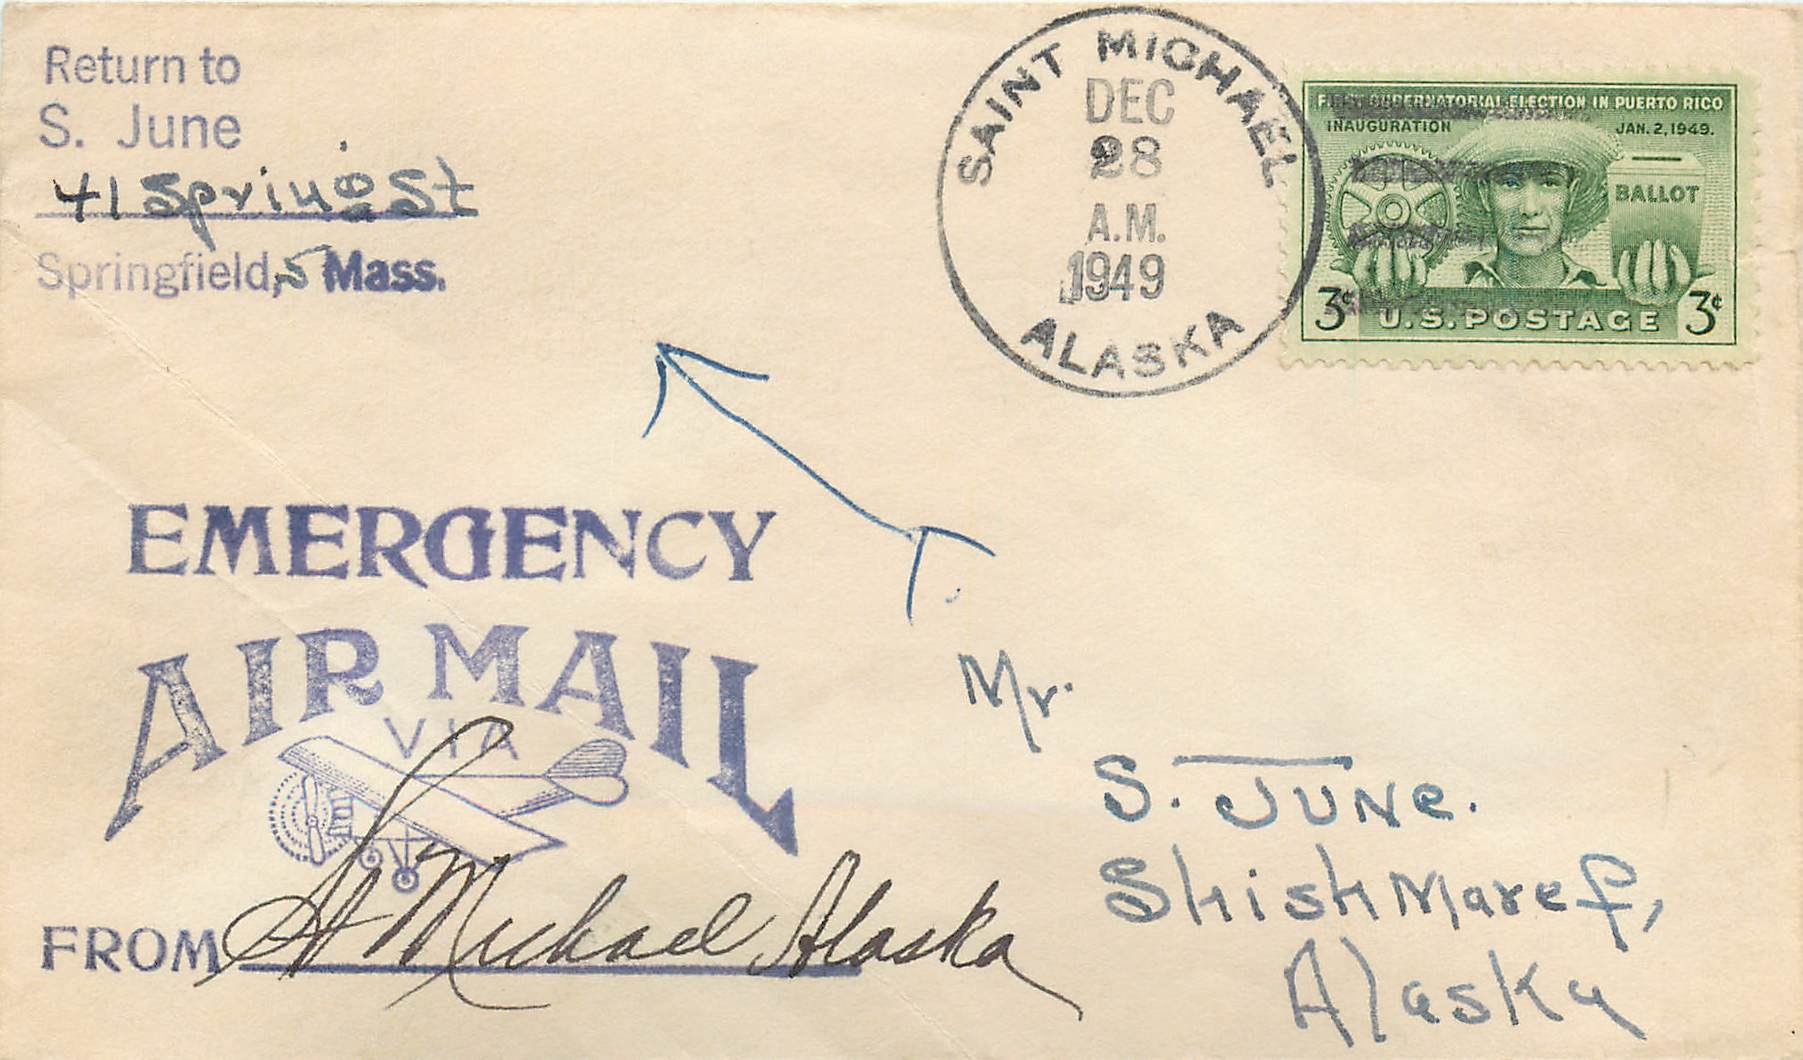 Return to
S. June
41 Spring St
Springfield, 5 Mass.
SAINT MICHAEL
DEC
28
A.M.
1949
ALASKA
FIRST GUBERNATORIAL ELECTION IN PUERTO RICO
INAUGURATION JAN. 2, 1949.
BALLOT
3¢ U.S. POSTAGE 3¢
EMERGENCY
AIR MAIL
VIA
FROM St Michael Alaska
Mr.
S. JUNe.
ShishMaref,
Alaska